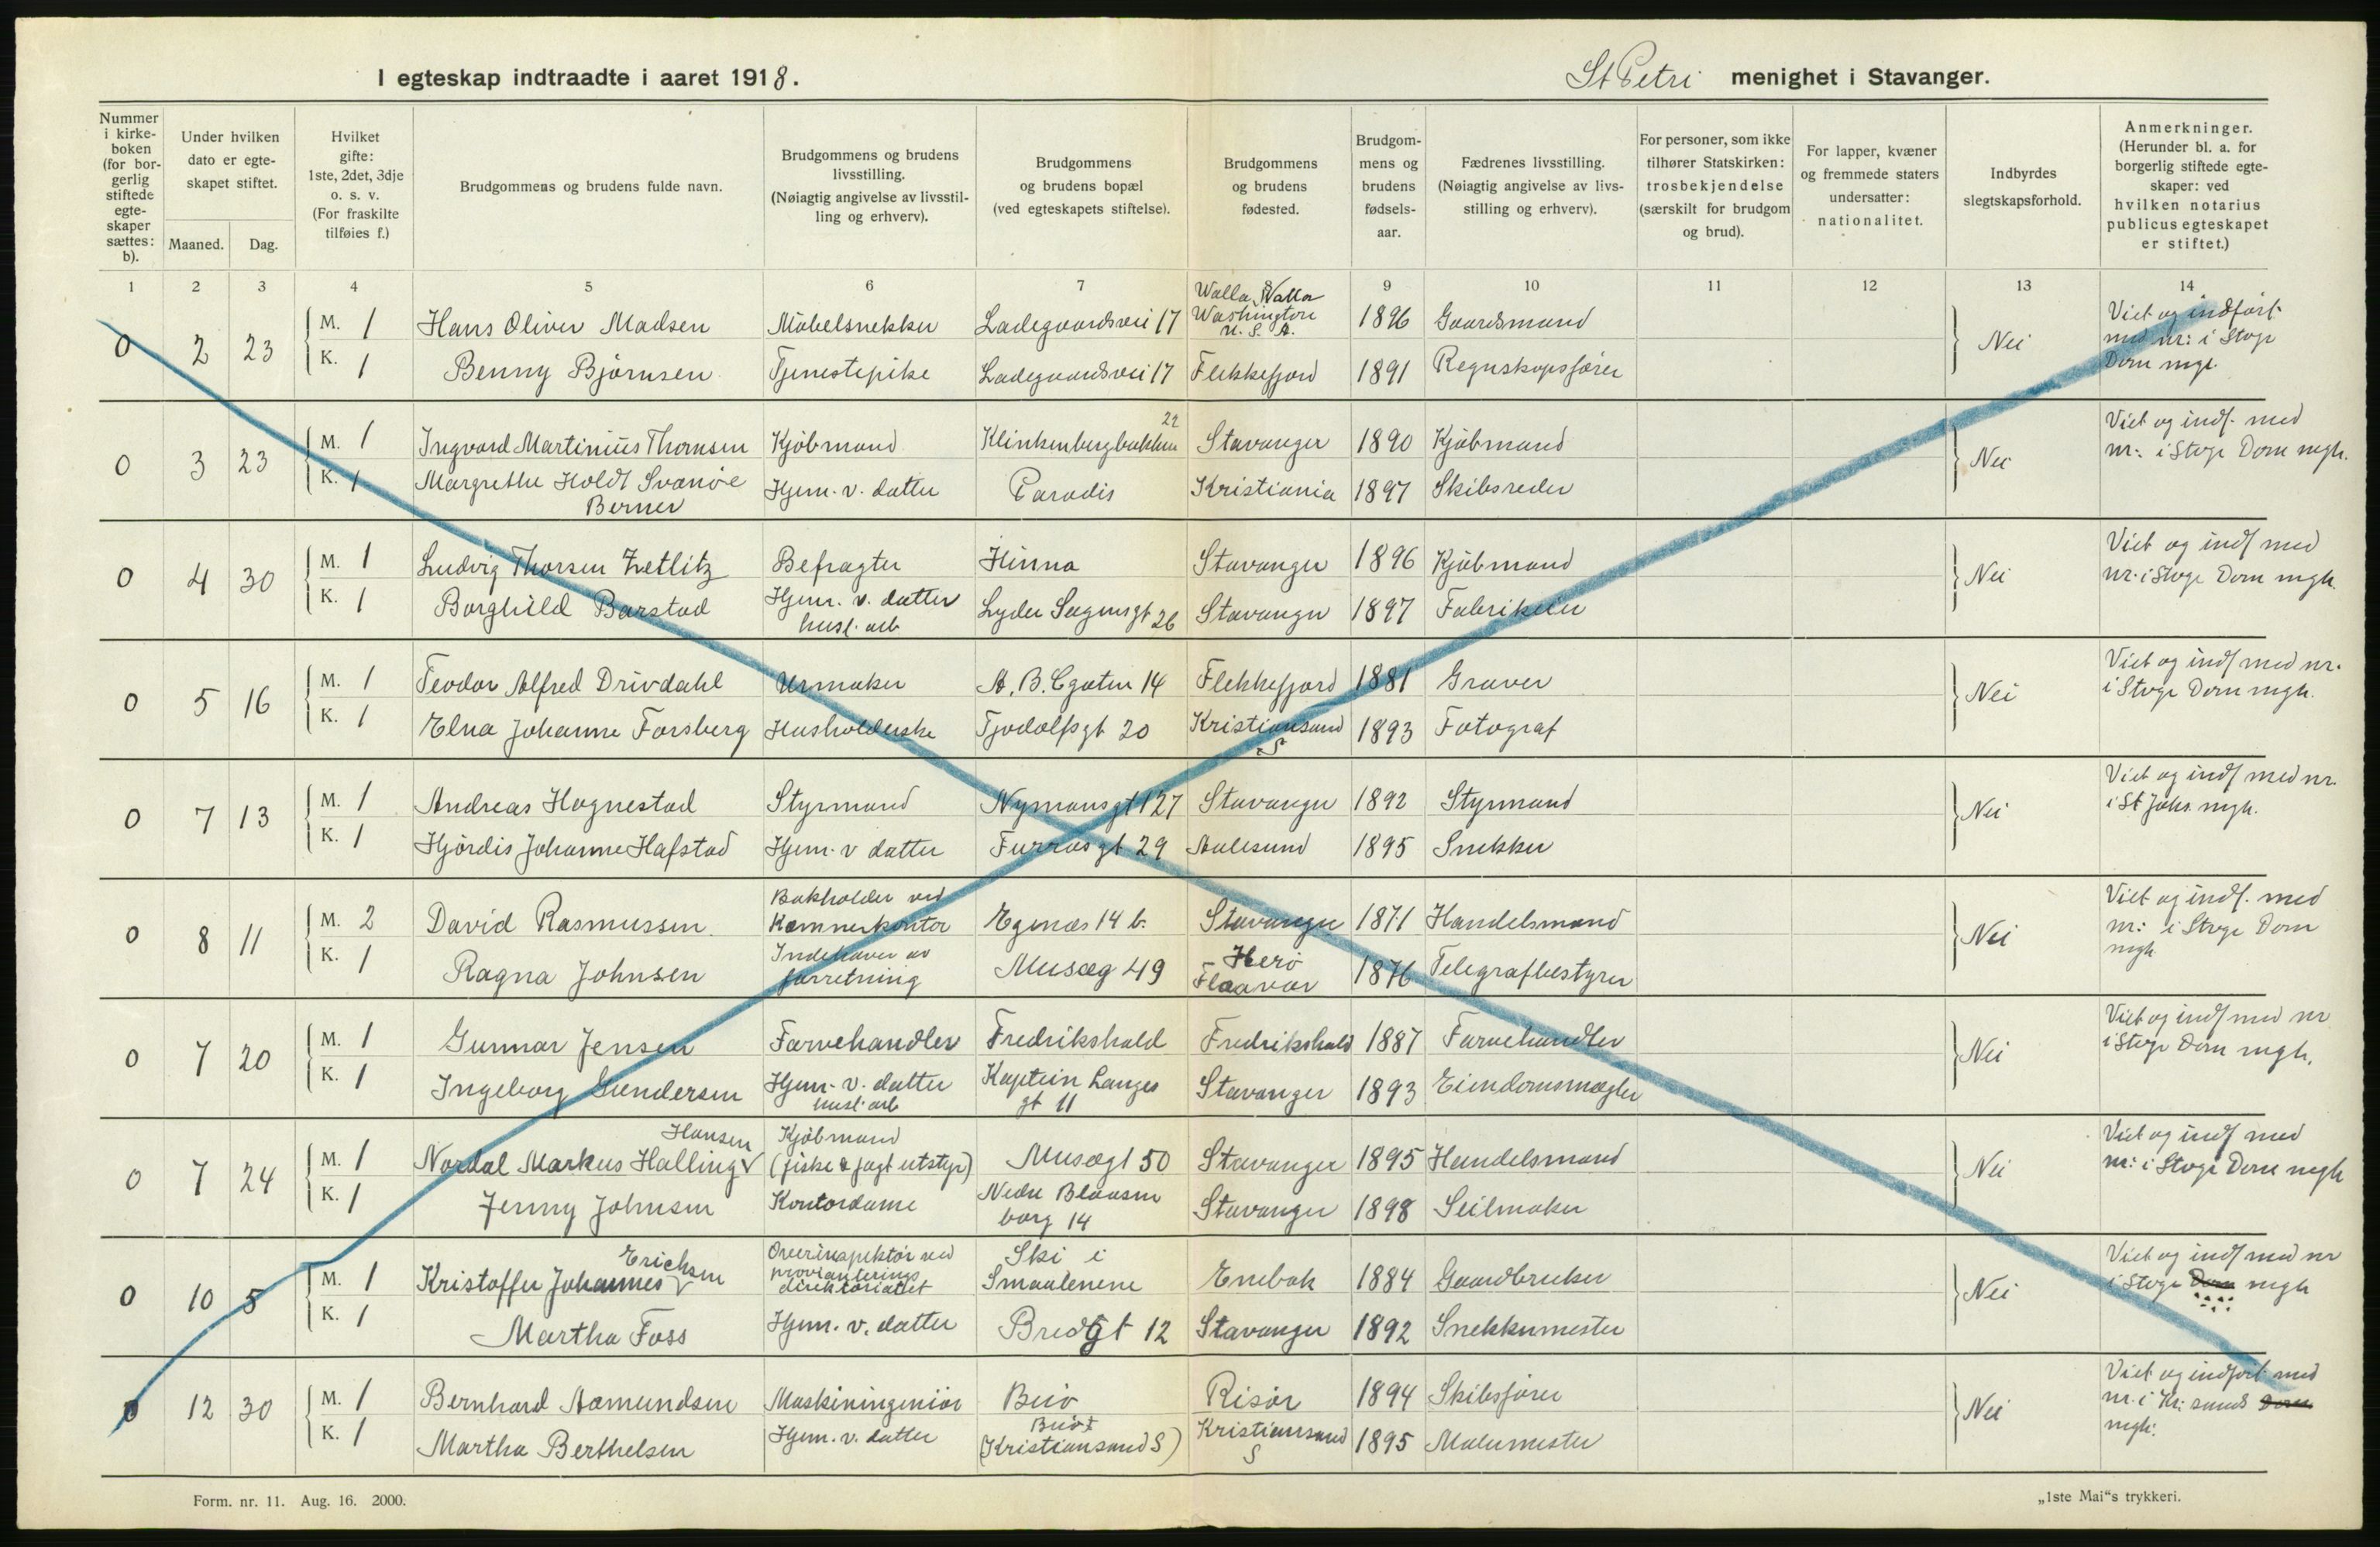 I egteskap indtraadte i aaret 1918.
St Petri menighet i Stavanger.
Nummer i kirkeboken (for borgerlig stiftede egteskaper sættes: b).
Under hvilken dato er egteskapet stiftet.
Maaned. Dag.
Hvilket gifte: 1ste, 2det, 3dje o. s. v. (For fraskilte tilføies f.)
Brudgommens og brudens fulde navn.
Brudgommens og brudens livsstilling. (Nøiagtig angivelse av livsstilling og erhverv).
Brudgommens og brudens bopæl (ved egteskapets stiftelse).
Brudgommens og brudens fødested.
Brudgommens og brudens fødselsaar.
Fædrenes livsstilling. (Nøiagtig angivelse av livsstilling og erhverv).
For personer, som ikke tilhører Statskirken: trosbekjendelse (særskilt for brudgom og brud).
For lapper, kvæner og fremmede staters undersatter: nationalitet.
Indbyrdes slegtskapsforhold.
Anmerkninger. (Herunder bl. a. for borgerlig stiftede egteskaper: ved hvilken notarius publicus egteskapet er stiftet.)
1 2 3 4 5 6 7 8 9 10 11 12 13 14
0 2 23 M. 1 Hans Oliver Madsen Møbelsnekker Ladegaardsvei 17 Walla Walla Washington U. S. A. 1896 Gaardsmand Nei Viet og indført med nr: i Stvgr Dom mgt.
K. 1 Benny Bjørnsen Tjenestepike Ladegaardsvei 17 Flekkefjord 1891 Regnskapsfører
0 3 23 M. 1 Ingvard Martinius Thomsen Kjøbmand Klinkenbergbakken 22 Stavanger 1890 Kjøbmand Nei Viet og indf. med nr: i Stvgr Dom mgh.
K. 1 Margrethe Holdt Svanøe Berner Hjem. v. datter Paradis Kristiania 1897 Skibsreder
0 4 30 M. 1 Ludvig Thorsen Zetlitz Befragter Hinna Stavanger 1896 Kjøbmand Nei Viet og indf med nr. i Stvgr Dom mgh.
K. 1 Borghild Barstad Hjem. v. datter husl. arb Lyder Sagensgt 26 Stavanger 1897 Fabrikeier
0 5 16 M. 1 Teodor Alfred Drivdahl Urmaker A. B. Cgaten 14 Flekkefjord 1881 Graver Nei Viet og indf med nr. i Stvgr Dom mgh.
K. 1 Elna Johanne Forsberg Husholderske Tjodolfsgt 20 Kristiansand S 1893 Fotograf
0 7 13 M. 1 Andreas Hognestad Styrmand Nymansgt 127 Stavanger 1892 Styrmand Nei Viet og indf med nr. i St Johs. mgh.
K. 1 Hjørdis Johanne Hafstad Hjem. v datter Furrasgt 29 Aalesund 1895 Snekker
0 8 11 M. 2 David Rasmussen Bokholder ved Kæmnerkontor Egenæs 14 b. Stavanger 1871 Handelsmand Nei Viet og indf. med nr: i Stvgr Dom mgh
K. 1 Ragna Johnsen Indehaver av forretning Musæg 49 Herø Flaavær 1876 Telegrafbestyrer
0 7 20 M. 1 Gunnar Jensen Farvehandler Fredrikshald Fredrikshald 1887 Farvehandler Nei Viet og indf med nr i Stvgr Dom mgh.
K. 1 Ingeborg Gundersen Hjem. v. datter husl. arb Kaptein Langes gt 11 Stavanger 1893 Eiendomsmægler
0 7 24 M. 1 Nordal Markus Halling Hansen Kjøbmand (fiske & jagt utstyr) Musægt 50 Stavanger 1895 Handelsmand Nei Viet og indf med nr: i Stvgr Dom mgh
K. 1 Jenny Johnsen Kontordame Nedre Blaasenborg 14 Stavanger 1898 Seilmaker
0 10 5 M. 1 Kristoffer Johannes Erichsen Overinspektør ved provianterings direktoriatet Ski i Smaalenene Enebak 1884 Gaardbruker Nei Viet og indf med nr i Stvgr Dom mgh
K. 1 Martha Foss Hjem. v. datter Bredgt 12 Stavanger 1892 Snekkermester
0 12 30 M. 1 Bernhard Aamundsen Maskiningeniør Buø Risør 1894 Skibsfører Nei Viet og indført med nr. i Kr: sands Dom mgh.
K. 1 Martha Berthelsen Hjem. v. datter Buø (Kristiansand S) Kristiansand S 1895 Malermester
Form. nr. 11. Aug. 16. 2000.
„1ste Mai“s trykkeri.